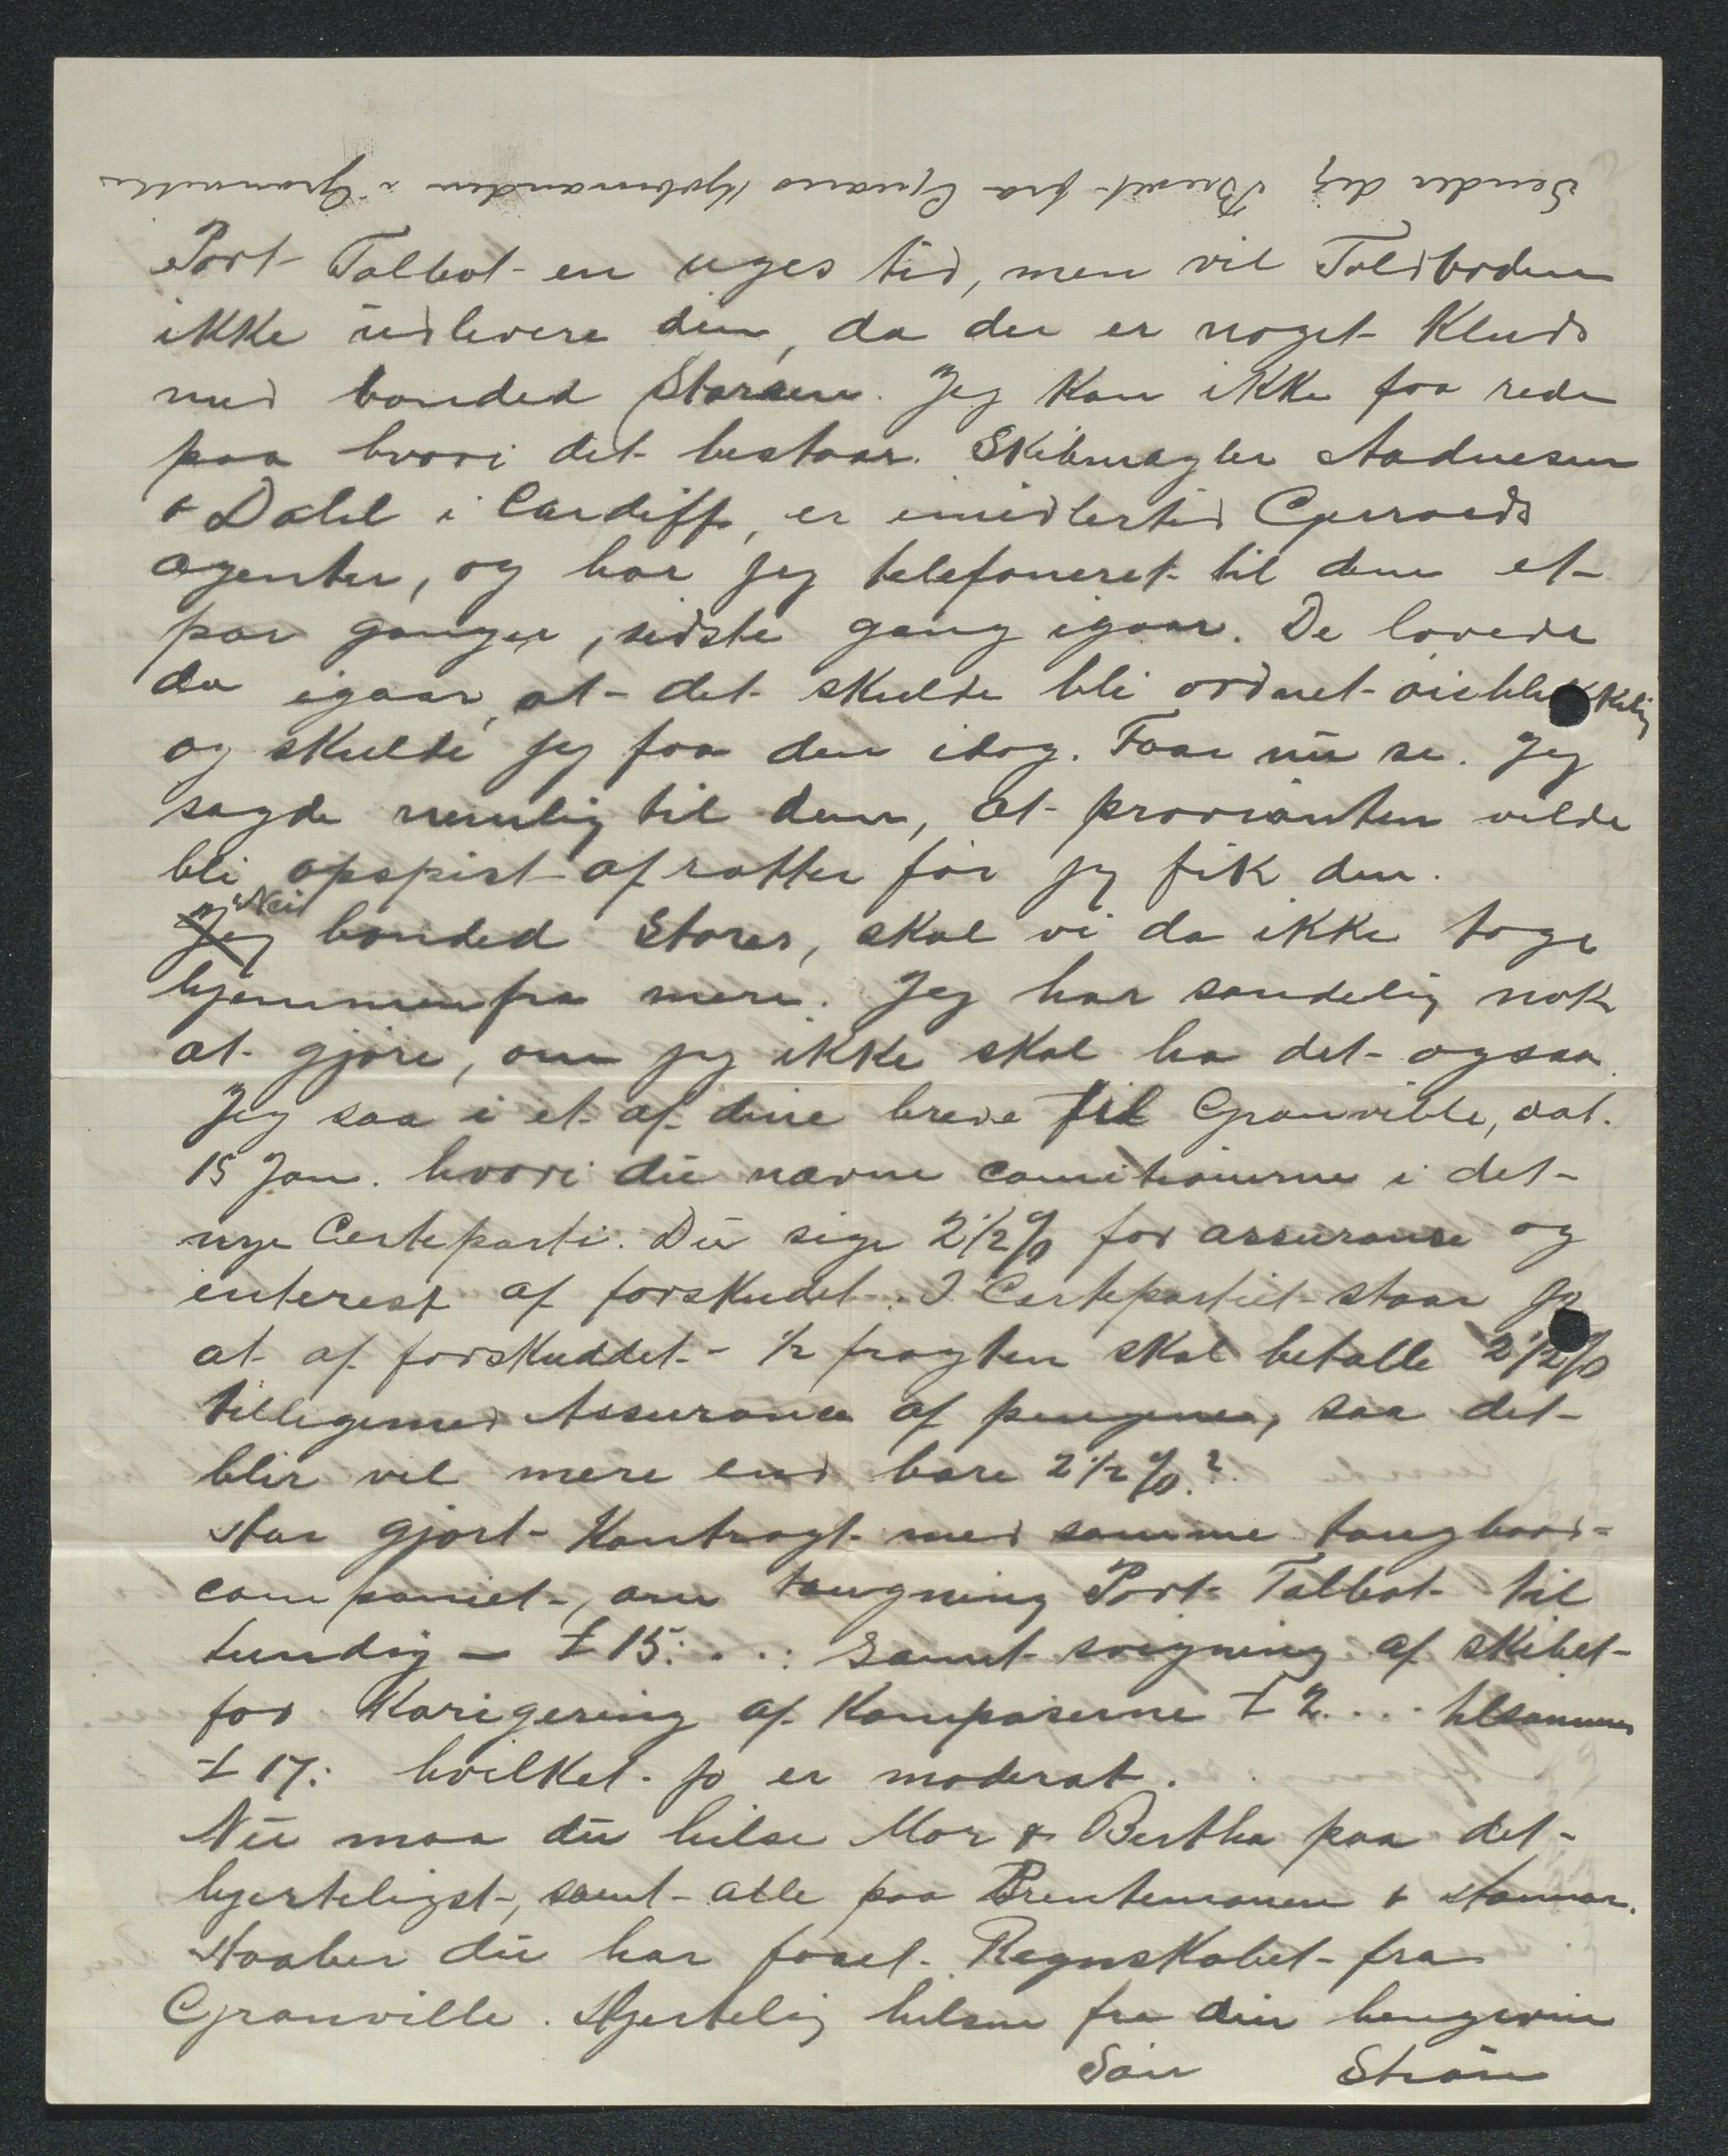 Sender dig Brevet fra Guano Kjøbmanden i Granville
Port Talbot en uges tid, men vil Toldboden
ikke udlevere den, da der er noget Kluds
med bonded Storsen. Jeg Kan ikke faa rede
paa hvori det bestaar. Skibmægler Andresen
& Dahl i Cardiff, er imidlertid
agenter, og har jeg telefoneret til dem et
par ganger, sidste gang igaar. De lovede
da igaar, at det skulde bli ordnet øieblikkelig
og skulde jeg faa den idag. Faar nu se. Jeg
sagde nemlig til dem, at provianten vilde
bli opspist af rotter før jeg fik den.
Nei bonded Stores, skal vi da ikke tage
hjemmenfra mere. Jeg har sandelig nok
at gjøre, om jeg ikke skal ha det ogsaa.
Jeg saa i et af dine breve til Granville, dat.
15 Jan. hvori du nævne i det
nye Certeparti. Du sige 2 1/2 % for assuranse og
interest af forskudet. I Certepartiet staar jo
at af forskuddet - 1/2 fragten skal betalle 2 1/2 %
tilligemed Assurance af pengene, saa det
blir vel mere end bare 2 1/2 %?
Har gjort Kontragt med samme taugbaad-
companiet, om taugning Port Talbot til
Lundy - £ 15. . . : Samt svigning af skibet
for Korigering af Kompaserne £ 2. . . tilsammen
£ 17: hvilket jo er moderat.
Nu maa du hilse Mor & Bertha paa det
hjerteligst, samt alle paa & Hannar.
Haaber du har faaet Regnskabet fra
Granville. Hjertelig hilsen fra din hengivne
Søn